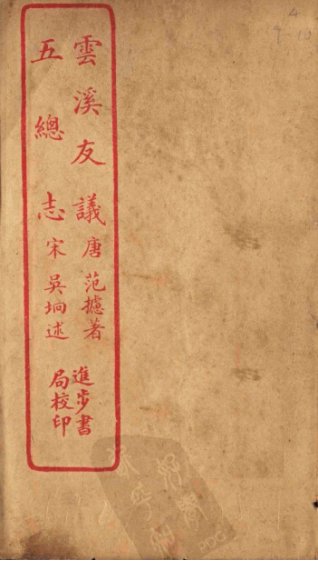 雲溪友議唐范攄著
五總志宋吳坰述
進步書
局校印
PDG